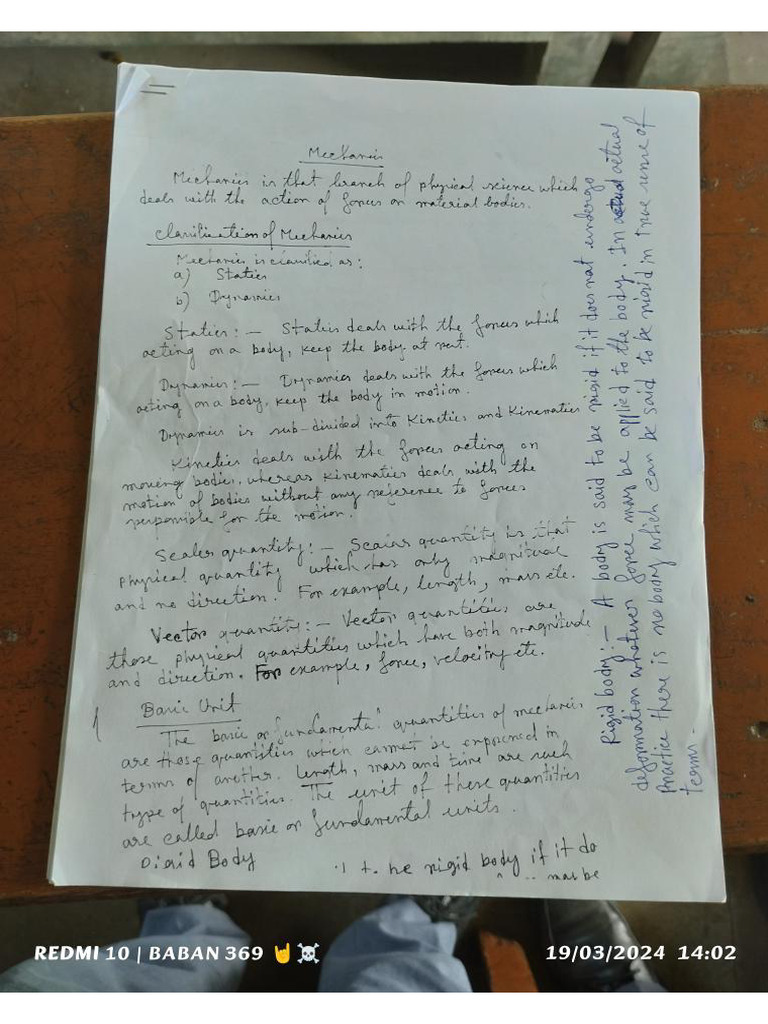 Mechanics
Mechanics is that branch of physical science which
deals with the action of forces on material bodies.
Classification of Mechanics
Mechanics is classified as:
a) Statics
b) Dynamics
Statics:- Statics deals with the forces which
acting on a body, keep the body at rest.
Dynamics:- Dynamics deals with the forces which
acting on a body, keep the body in motion.
Dynamics is sub-divided into Kinetics and Kinematics
Kinetics deals with the forces acting on
moving bodies, whereas kinematics deals with the
motion of bodies without any reference to forces
responsible for the motion.
Scaler quantity:- Scalar quantity is that
physical quantity which has only magnitude
and no direction. For example, length, mass etc.
Vector quantity:- Vector quantities are
those physical quantities which have both magnitude
and direction. For example, force, velocity etc.
Basic Unit
The basic or fundamental quantities of mechanics
are those quantities which cannot be expressed in
terms of another. Length, mass and time are such
type of quantities. The unit of these quantities
are called basic or fundamental units.
Rigid Body
to be rigid body if it do
may be
Rigid body:- A body is said to be rigid if it does not undergo
deformation whatever force may be applied to the body. In actual
Practice there is no body which can be said to be rigid in true sense of
terms.
REDMI 10 | BABAN 369 🤘☠️
19/03/2024 14:02